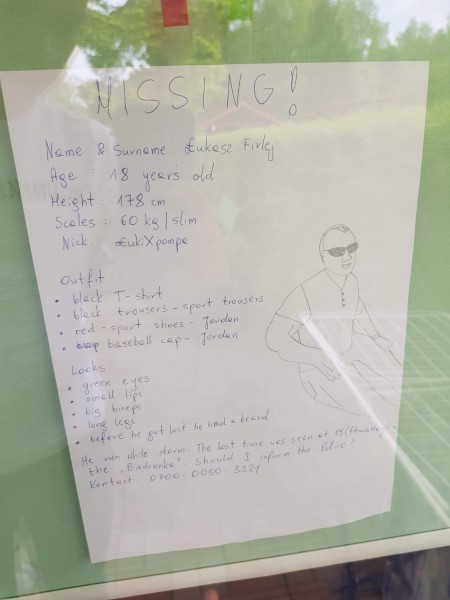 MISSING!
Name & Surname: Łukasz Firlej
Age : 18 years old
Height : 178 cm
Scales : 60 kg/slim
Nick: ŁukiXpompa
Outfit:
• black T-shirt
• black trousers - sport trousers
• red - sport shoes - Jordan
• baseball cap - Jordan
Looks:
• green eyes
• small lips
• big biceps
• long legs
• before he got lost he had a beard.
He run while storm. The last time was seen at 19 (
the „Biedronka". Should I inform the Police?
Kontact 0700-0050-332